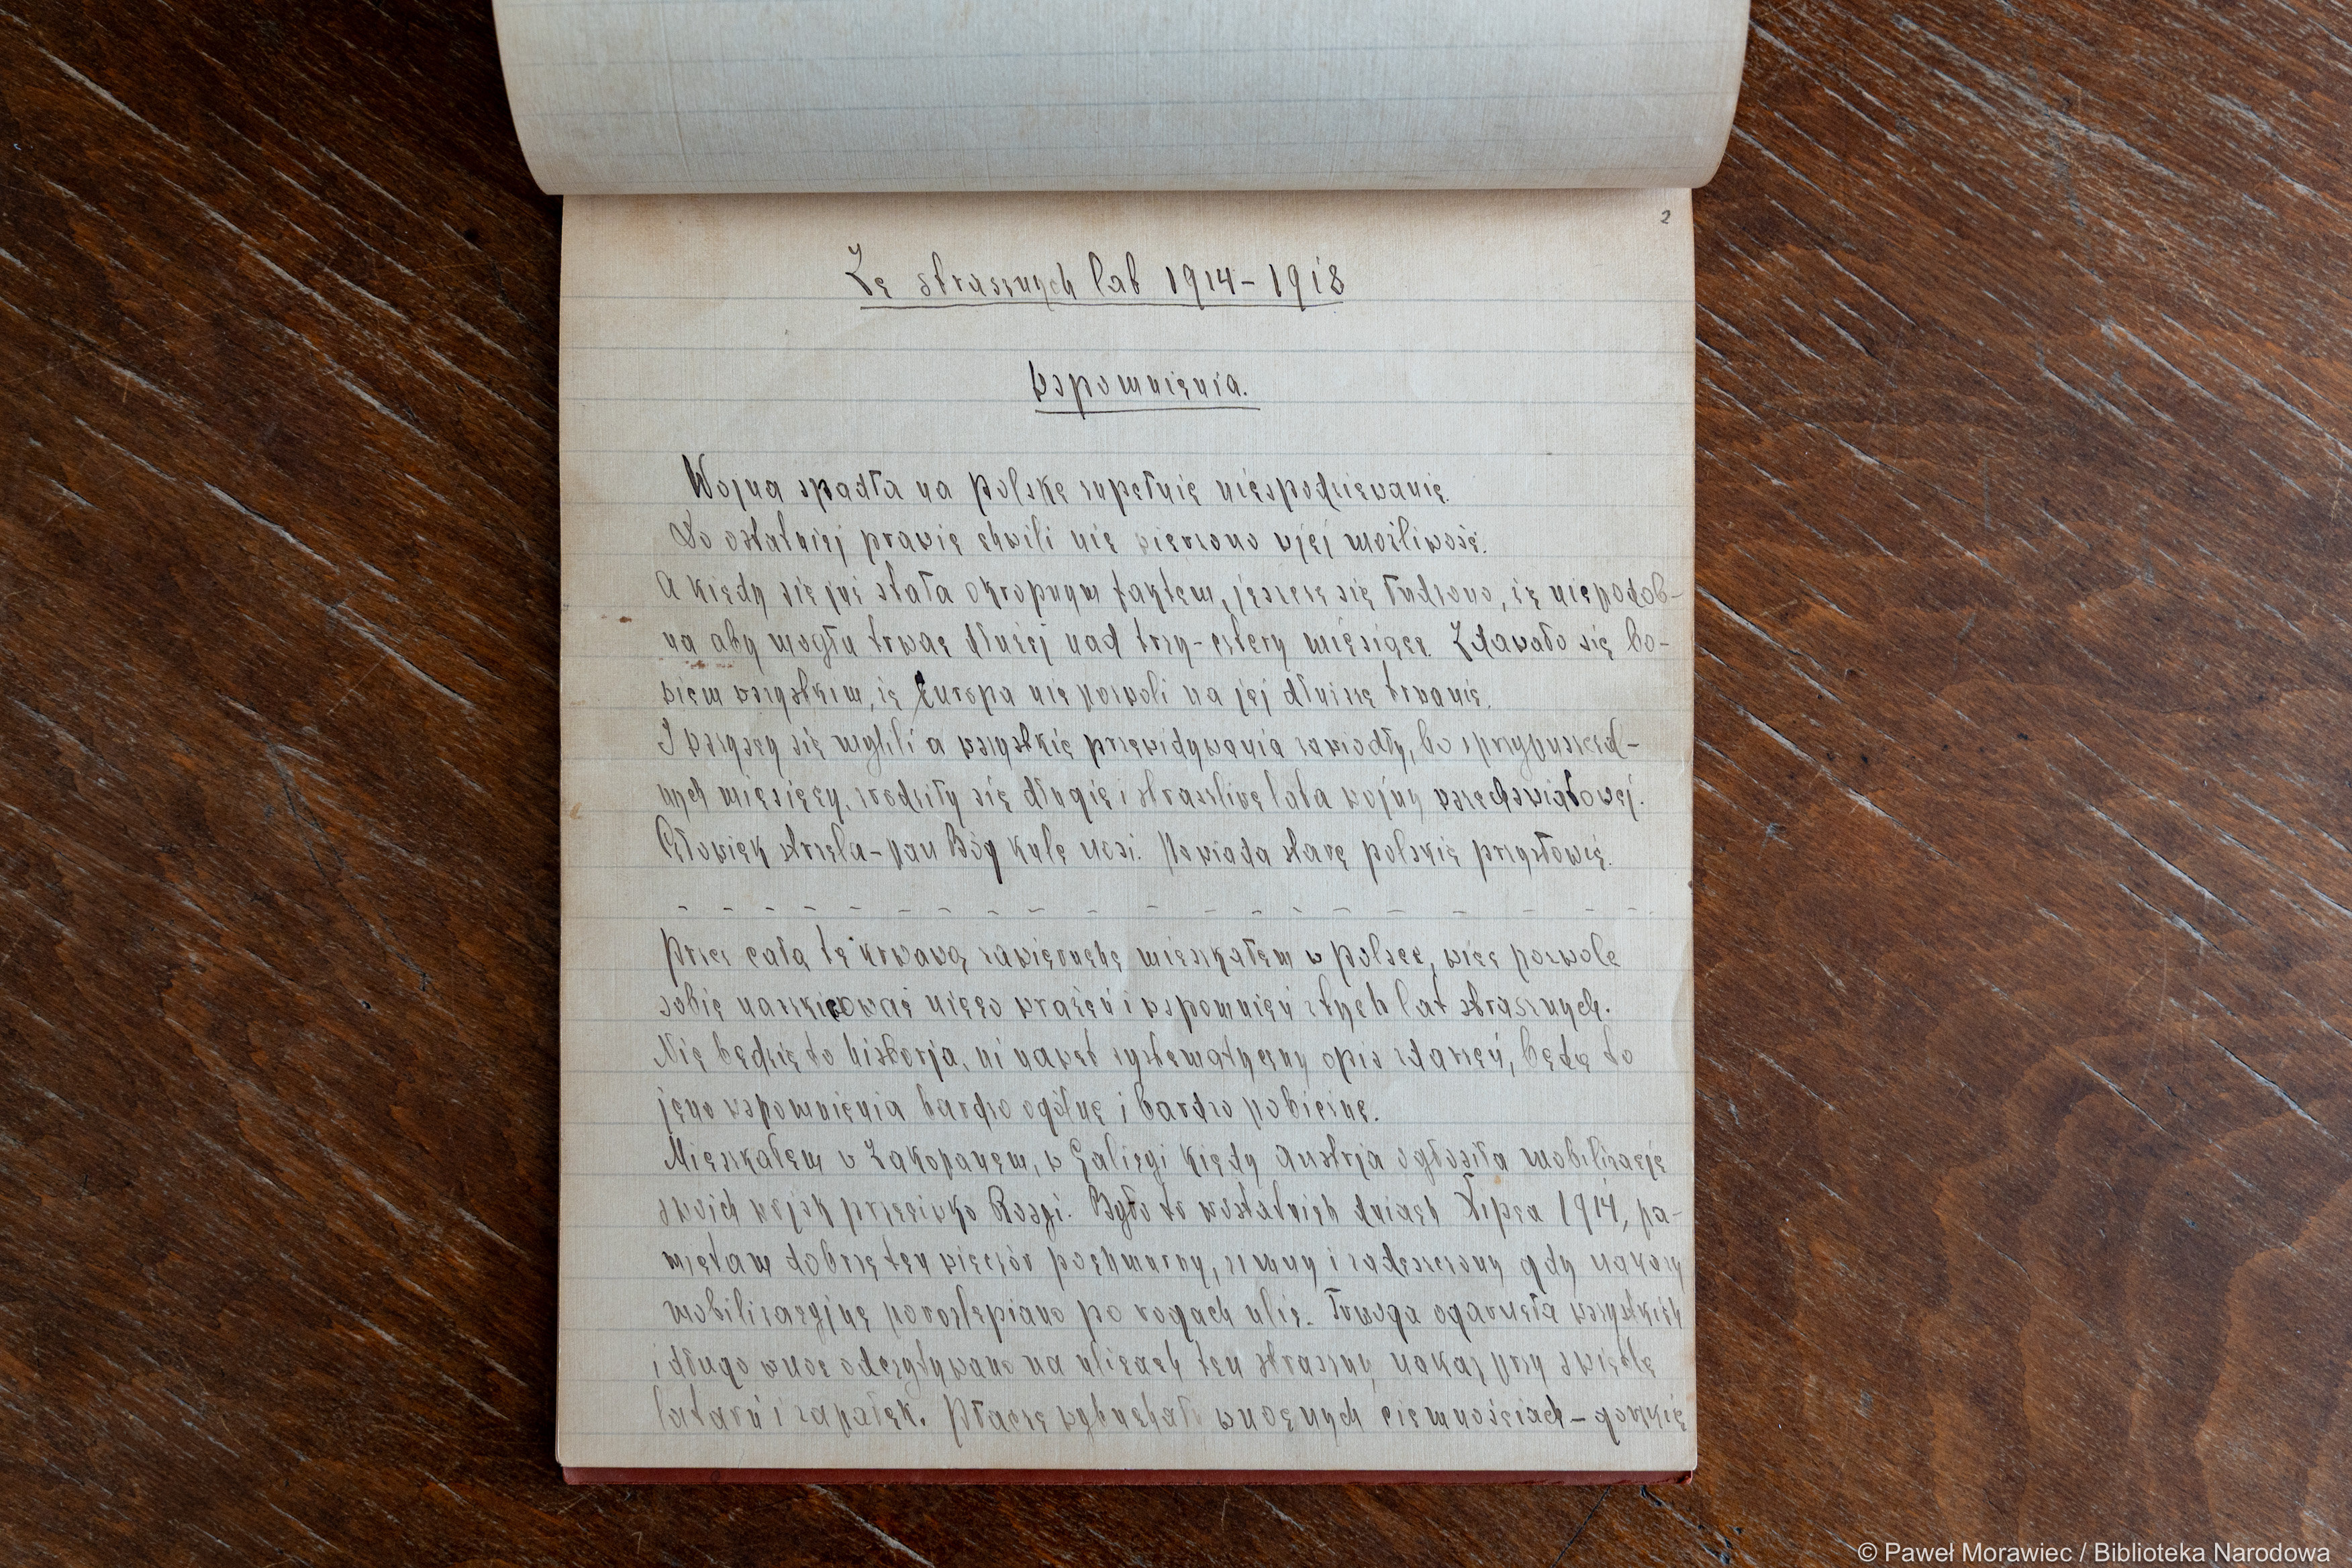 2
Ze strasznych lat 1914-1918
Wspomnienia.
Wojna spadła na Polskę zupełnie niespodziewanie.
Do ostatniej prawie chwili nie wierzono w jej możliwość.
A kiedy się już stała okropnym faktem, jeszcze się łudzono, iż niepodob-
na aby mogła trwać dłużej nad trzy-cztery miesiące. Zdawało się bo-
wiem wszystkim, iż Europa nie pozwoli na jej dłuższe trwanie.
I wszyscy się mylili a wszystkie przewidywania zawiodły, bo z przypuszczal-
nych miesięcy, zrodziły się długie i straszliwe lata wojny wszechświatowej.
Człowiek strzela-pan Bóg kule nosi. Powiada stare polskie przysłowie.
- - - - - - - - - - - - - - - - - - - - - -
Przez całą tę krwawą zawieruchę mieszkałem w Polsce, więc pozwolę
sobie naszkicować nieco wrażeń i wspomnień z tych lat strasznych.
Nie będzie to historja, ni nawet systematyczny opis zdarzeń, będą to
jeno wspomnienia bardzo ogólne i bardzo pobieżne.
Mieszkałem w Zakopanem, w Galicyi kiedy Austrja ogłosiła mobilizację
swoich wojsk przeciwko Rosyi. Było to w ostatnich dniach Lipca 1914, pa-
miętam dobrze ten wieczór pochmurny, zimny i zadeszczony gdy nakazy
mobilizacyjne porozlepiano po rogach ulic. Trwoga ogarnęła wszystkich
i długo w noc odczytywano na ulicach ten straszny nakaz przy świetle
latarń i zapałek. Płacze wybuchały w nocnych ciemnościach - gorzkie
© Paweł Morawiec / Biblioteka Narodowa